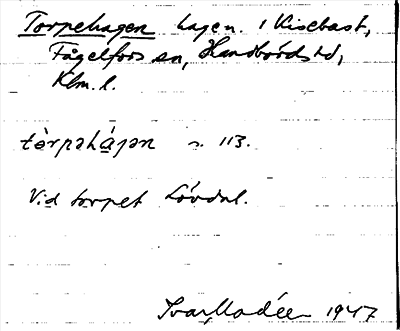 Torpehagen hagen. i Kisebast,
Fågelfors sn, Handbörds hd,
Klm. l.
tòrpəhájən n. 113.
Vid torpet Lövdal.
Ivar Modéer 1947